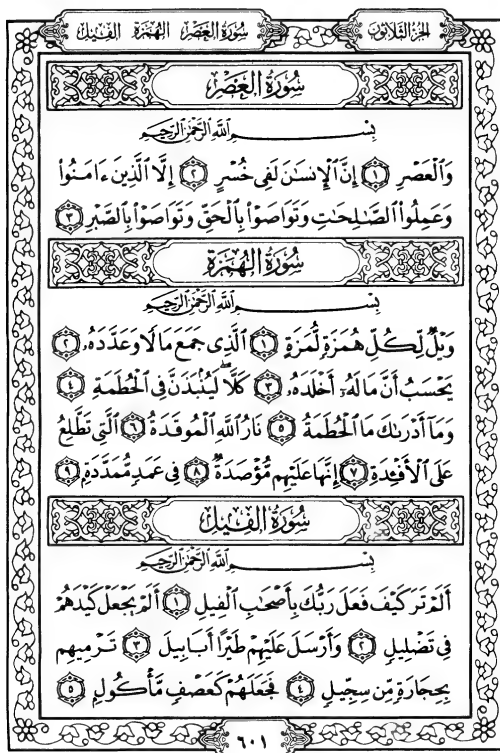 سُورَةُ العَصْرِ الهُمَزَةِ الفِيلِ الجُزءُ الثَّلَاثُونَ
سُورَةُ العَصْرِ
بِسْمِ ٱللَّهِ ٱلرَّحْمَٰنِ ٱلرَّحِيمِ
وَٱلْعَصْرِ ١ إِنَّ ٱلْإِنسَٰنَ لَفِى خُسْرٍ ٢ إِلَّا ٱلَّذِينَ ءَامَنُوا۟
وَعَمِلُوا۟ ٱلصَّٰلِحَٰتِ وَتَوَاصَوْا۟ بِٱلْحَقِّ وَتَوَاصَوْا۟ بِٱلصَّبْرِ ٣
سُورَةُ الهُمَزَةِ
بِسْمِ ٱللَّهِ ٱلرَّحْمَٰنِ ٱلرَّحِيمِ
وَيْلٌ لِّكُلِّ هُمَزَةٍ لُّمَزَةٍ ١ ٱلَّذِى جَمَعَ مَالًا وَعَدَّدَهُۥ ٢
يَحْسَبُ أَنَّ مَالَهُۥٓ أَخْلَدَهُۥ ٣ كَلَّا ۖ لَيُنۢبَذَنَّ فِى ٱلْحُطَمَةِ ٤
وَمَآ أَدْرَىٰكَ مَا ٱلْحُطَمَةُ ٥ نَارُ ٱللَّهِ ٱلْمُوقَدَةُ ٦ ٱلَّتِى تَطَّلِعُ
عَلَى ٱلْأَفْـِٔدَةِ ٧ إِنَّهَا عَلَيْهِم مُّؤْصَدَةٌ ٨ فِى عَمَدٍ مُّمَدَّدَةٍۭ ٩
سُورَةُ الفِيلِ
بِسْمِ ٱللَّهِ ٱلرَّحْمَٰنِ ٱلرَّحِيمِ
أَلَمْ تَرَ كَيْفَ فَعَلَ رَبُّكَ بِأَصْحَٰبِ ٱلْفِيلِ ١ أَلَمْ يَجْعَلْ كَيْدَهُمْ
فِى تَضْلِيلٍ ٢ وَأَرْسَلَ عَلَيْهِمْ طَيْرًا أَبَابِيلَ ٣ تَرْمِيهِم
بِحِجَارَةٍ مِّن سِجِّيلٍ ٤ فَجَعَلَهُمْ كَعَصْفٍ مَّأْكُولٍۭ ٥
٦٠١